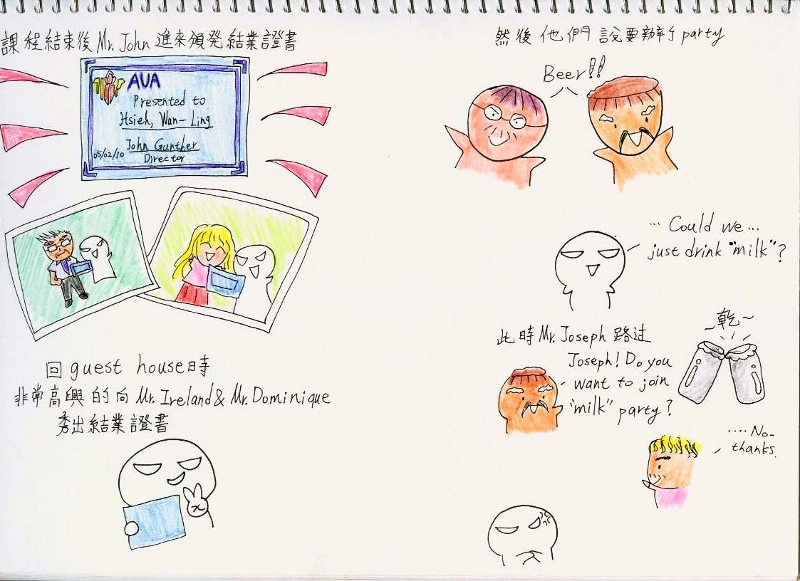 課程結束後Mr. John進來頒發結業證書
AUA
Presented to
Hsieh, Wan-Ling
John Gunther
05/02/10 Director
回guest house時
非常高興的向Mr. Ireland & Mr. Dominique
秀出結業證書
然後他們說要辦party
Beer!!
... Could we ...
just drink "milk"?
此時Mr. Joseph路過
~乾~
Joseph! Do you
want to join
"milk" party?
.... No-
thanks.